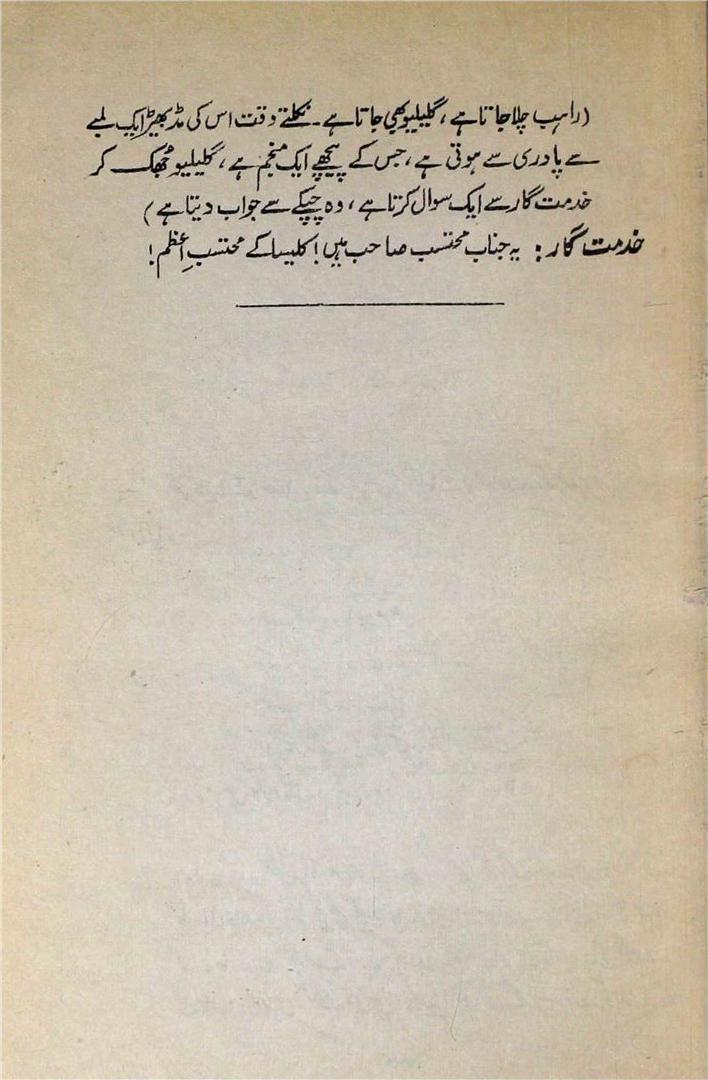 (راہب چلا جاتا ہے، گلیلیو بھی جاتا ہے۔ نکلتے وقت اس کی مڈبھیڑ ایک لمبے
سے پادری سے ہوتی ہے، جس کے پیچھے ایک منجم ہے، گلیلیو ٹھٹھک کر
خدمت گار سے ایک سوال کرتا ہے، وہ چپکے سے جواب دیتا ہے)
خدمت گار: یہ جناب محتسب صاحب ہیں! کلیسا کے محتسبِ اعظم!